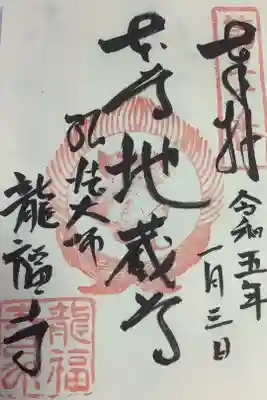 奉拝
令和五年
一月三日
本尊地蔵尊
弘法大師
龍福寺
龍福